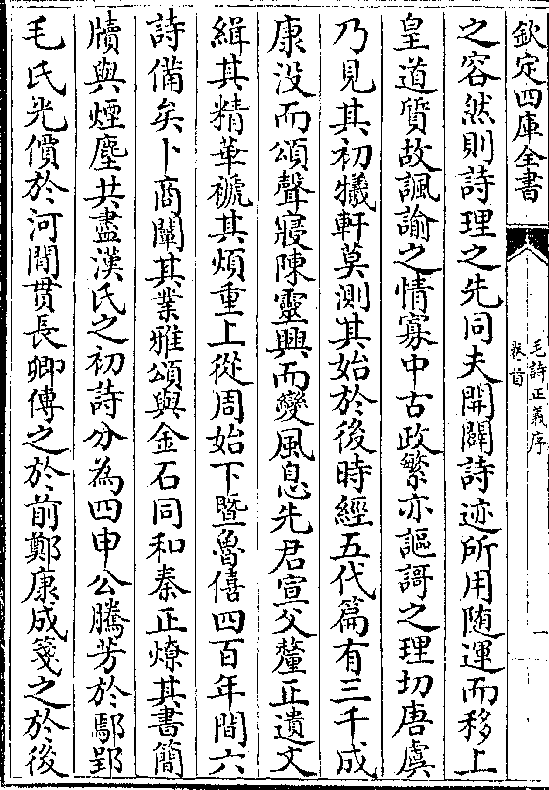 欽定四庫全書
毛詩正義序
卷首
一
之容然則詩理之先同夫開闢詩迹所用随運而移上
皇道質故諷諭之情寡中古政繁亦謳謌之理切唐虞
乃見其初犧軒莫測其始於後時經五代篇有三千成
康没而頌聲寢陳靈興而變風息先君宣父釐正遺文
緝其精華褫其煩重上從周始下暨魯僖四百年間六
詩備矣卜商闡其業雅頌與金石同和秦正燎其書簡
牘與煙塵共盡漢氏之初詩分為四申公騰芳於鄢郢
毛氏光價於河間貫長卿傳之於前鄭康成箋之於後